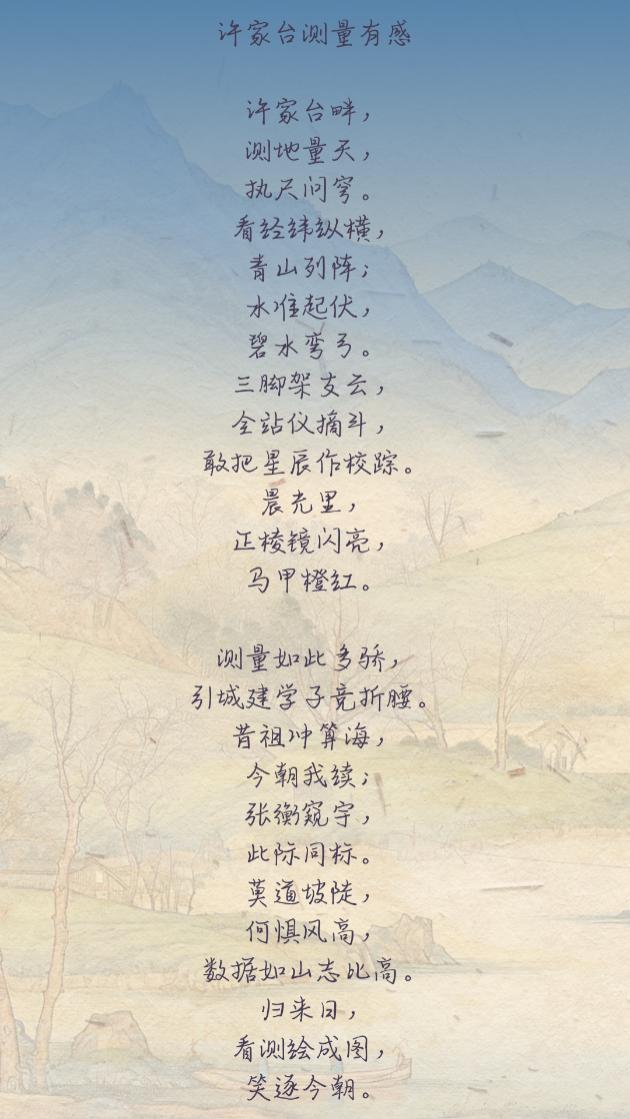 许家台测量有感
许家台畔，
测地量天，
执尺问穹。
看经纬纵横，
青山列阵；
水准起伏，
碧水弯弓。
三脚架支云，
全站仪摘斗，
敢把星辰作校踪。
晨光里，
正棱镜闪亮，
马甲橙红。
测量如此多骄，
引城建学子竞折腰。
昔祖冲算海，
今朝我续；
张衡窥宇，
此际同标。
莫道坡陡，
何惧风高，
数据如山志比高。
归来日，
看测绘成图，
笑逐今朝。